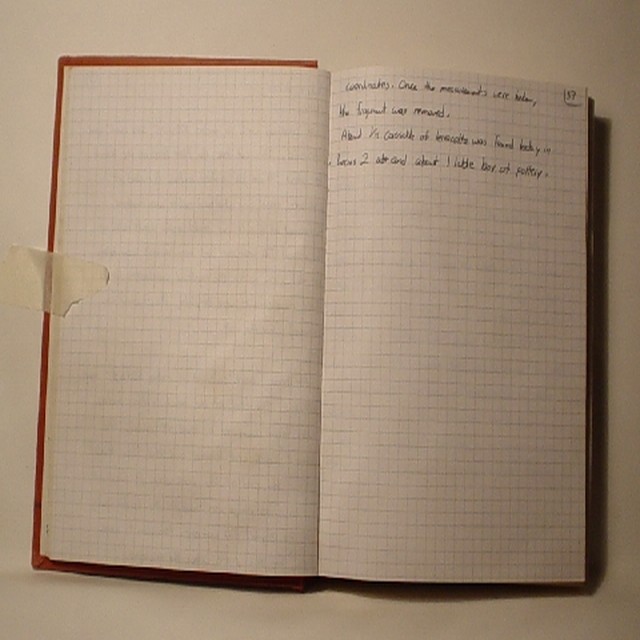 37
coordinates. Once the measurements were taken,
the fragment was removed.
About 1/2 cassette of terracotta was found today in
Locus 2 also and about 1 little box of pottery.